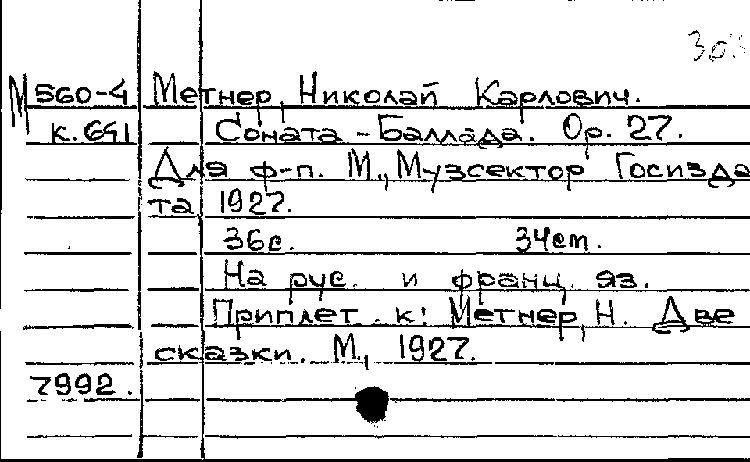 М 560-4 Метнер, Николай Карлович.
к. 641 Соната-Баллада. Ор. 27.
Для ф-п. М., Музсектор Госизда
та, 1927.
36с. 34ст.
На рус. и франц. яз.
Приплет. к: Метнер, Н. Две
сказки. М., 1927.
7992.